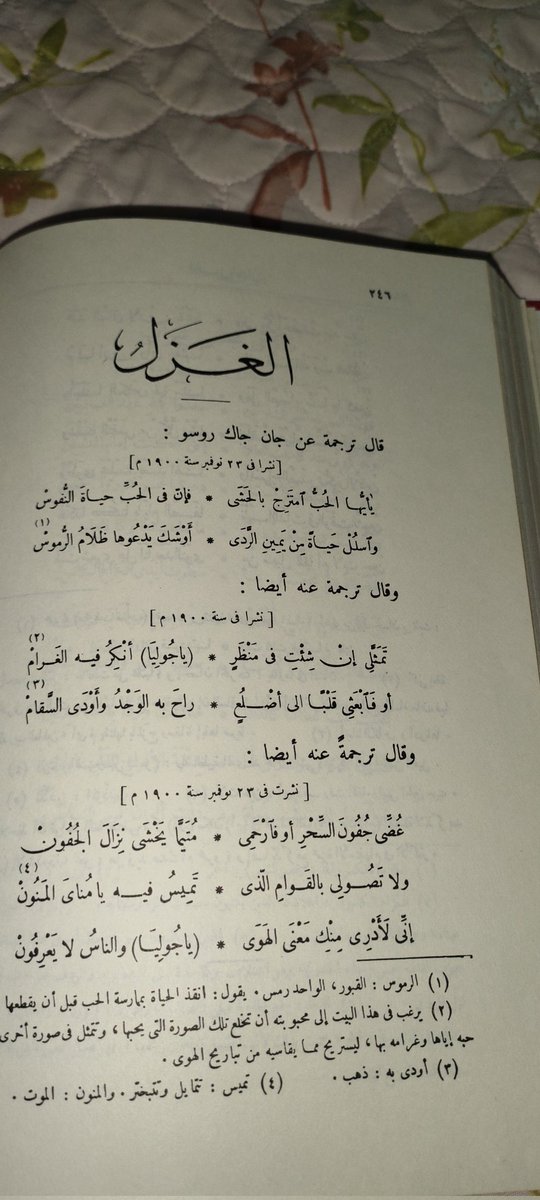 ٢٤٦
الغَزَلُ
قال ترجمة عن جان جاك روسو :
[نشرا فى ٢٣ نوفمبر سنة ١٩٠٠ م]
يٰأيُّها الحُبُّ ٱمتَزِجْ بالحَشَى * فإنّ فى الحُبِّ حياةَ النُّفوسْ
وٱسلُلْ حَياةً مِنْ يَمينِ الرَّدَى * أَوْشَكَ يَدْعُوها ظَلَامُ الرُّموسْ (١)
وقال ترجمة عنه أيضا :
[نشرا فى سنة ١٩٠٠ م]
تَمَثَّلِى إنْ شِئْتِ فى مَنْظَرٍ * (ياجُولِيَا) أُنْكِرُ فيه الغَرامْ (٢)
أو فَٱبْعَثِى قَلْبًا الى أَضْلُعٍ * راحَ به الوَجْدُ وأَوْدَى السَّقامْ (٣)
وقال ترجمةً عنه أيضا :
[نشرت فى ٢٣ نوفمبر سنة ١٩٠٠ م]
غُضِّى جُفُونَ السِّحْرِ أو فَٱرْحَمِى * مُتَيَّمًا يَخْشَى نِزَالَ الجُفُونْ
ولا تَصُولِى بالقَوامِ الّذى * تَمِيسُ فيه يا مُناىَ المَنُونْ (٤)
إنِّى لَأَدْرِى مِنْكِ مَعْنَى الهَوَى * (ياجُولِيَا) والناسُ لا يَعْرِفُونْ
(١) الرموس : القبور، الواحد رمس . يقول : انقذ الحياة بممارسة الحب قبل أن يقطعها
(٢) يرغب فى هذا البيت إلى محبوبته أن تخلع تلك الصورة التى يحبها ، وتتمثل فى صورة أخرى
حبه إياها وغرامه بها ، ليستريح مما يقاسيه من تباريح الهوى .
(٣) أودى به : ذهب . (٤) تميس : تتمايل وتتبختر . والمنون : الموت .